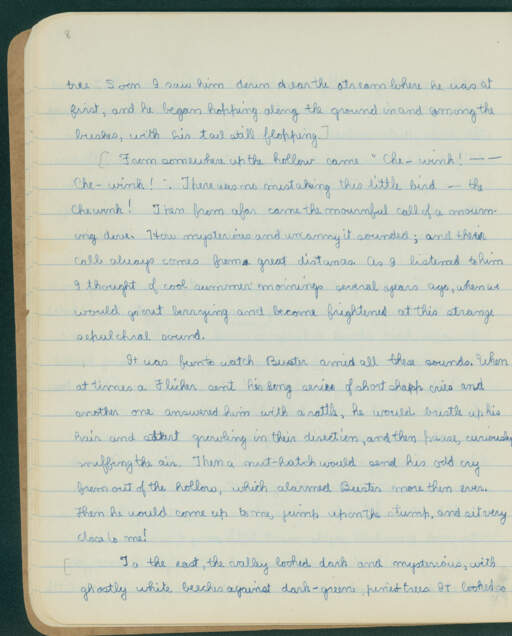 8
tree. Soon I saw him down near the stream where he was at
first, and he began hopping along the ground in and among the
bushes, with his tail still flopping.]
[ From somewhere up the hollow came "Che-wink! — —
Che-wink!". There was no mistaking this little bird — the
Chewink! Then from afar came the mournful call of a mourn-
ing dove. How mysterious and uncanny it sounded; and their
calls always comes from a great distance. As I listened to him
I thought of cool summer mornings several years ago, when we
would go out berrying and become frightened at this strange
sepulchral sound.
It was fun to watch Buster amid all these sounds. When
at times a Flicker sent his long series of short sharp cries and
another one answered him with a rattle, he would bristle up his
hair and start growling in their direction, and then pause, curiously
sniffing the air. Then a nut-hatch would send his odd cry
from out of the hollow, which alarmed Buster more then ever.
Then he would come up to me, jump upon the stump, and sit very
close to me!
[ To the east, the valley looked dark and mysterious, with
ghostly white beeches against dark-green, pine trees. It looked so